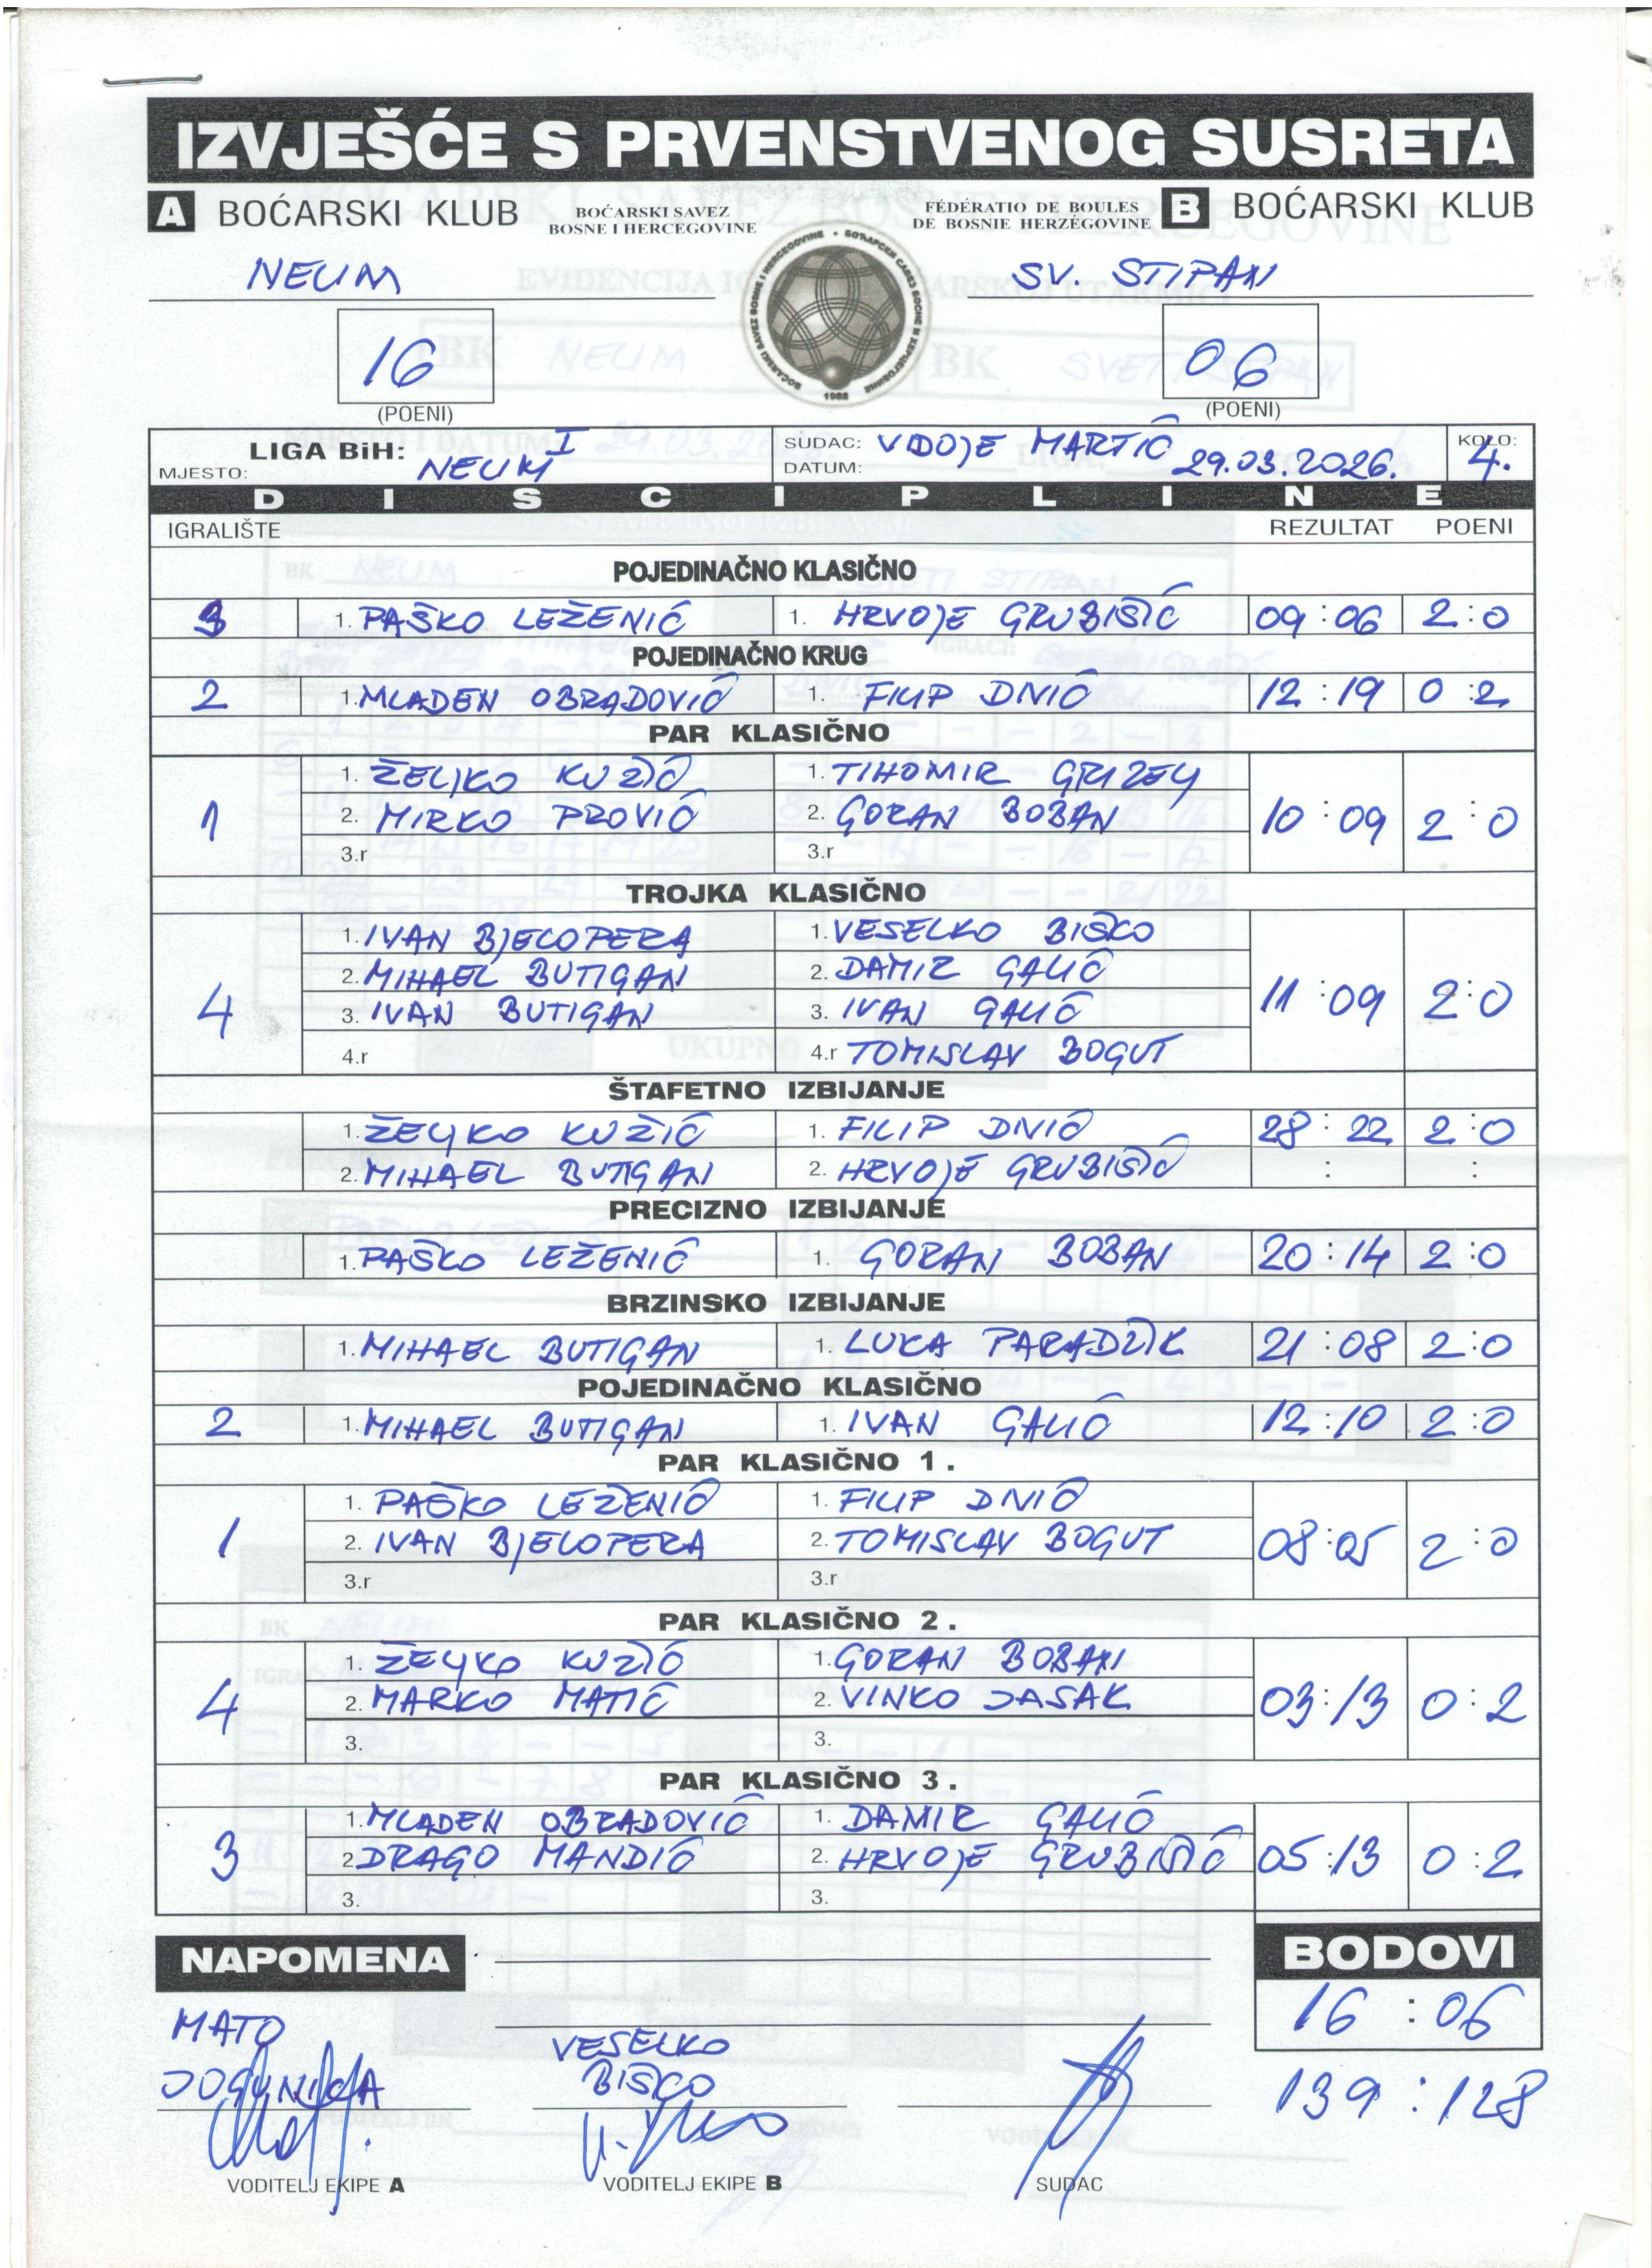 IZVJEŠĆE S PRVENSTVENOG SUSRETA
A BOĆARSKI KLUB BOĆARSKI SAVEZ BOSNE I HERCEGOVINE FÉDÉRATIO DE BOULES DE BOSNIE HERZÉGOVINE B BOĆARSKI KLUB
NEUM SV. STIPAN
16 06
(POENI) (POENI)
LIGA BiH: I SUDAC: VDOJE MARTIĆ KOLO:
MJESTO: NEUM DATUM: 29.03.2026. 4.
DISCIPLINE
IGRALIŠTE REZULTAT POENI
POJEDINAČNO KLASIČNO
3 1. PAŠKO LEŽENIĆ 1. HRVOJE GRUBIŠIĆ 09:06 2:0
POJEDINAČNO KRUG
2 1. MLADEN OBRADOVIĆ 1. FILIP DIVIĆ 12:19 0:2
PAR KLASIČNO
1. ŽELJKO KUŽIĆ 1. TIHOMIR GRIZELJ
1 2. MIRKO PROVIĆ 2. GORAN BOBAN 10:09 2:0
3.r 3.r
TROJKA KLASIČNO
1. IVAN BJELOPERA 1. VESELKO BIŠKO
2. MIHAEL BUTIGAN 2. DAMIR GALIĆ
4 3. IVAN BUTIGAN 3. IVAN GALIĆ 11:09 2:0
4.r 4.r TOMISLAV BOGUT
ŠTAFETNO IZBIJANJE
1. ŽELJKO KUŽIĆ 1. FILIP DIVIĆ 28:22 2:0
2. MIHAEL BUTIGAN 2. HRVOJE GRUBIŠIĆ : :
PRECIZNO IZBIJANJE
1. PAŠKO LEŽENIĆ 1. GORAN BOBAN 20:14 2:0
BRZINSKO IZBIJANJE
1. MIHAEL BUTIGAN 1. LUKA PARADŽIK 21:08 2:0
POJEDINAČNO KLASIČNO
2 1. MIHAEL BUTIGAN 1. IVAN GALIĆ 12:10 2:0
PAR KLASIČNO 1.
1. PAŠKO LEŽENIĆ 1. FILIP DIVIĆ
1 2. IVAN BJELOPERA 2. TOMISLAV BOGUT 08:05 2:0
3.r 3.r
PAR KLASIČNO 2.
1. ŽELJKO KUŽIĆ 1. GORAN BOBAN
4 2. MARKO MATIĆ 2. VINKO JASAK 03:13 0:2
3. 3.
PAR KLASIČNO 3.
1. MLADEN OBRADOVIĆ 1. DAMIR GALIĆ
3 2. DRAGO MANDIĆ 2. HRVOJE GRUBIŠIĆ 05:13 0:2
3. 3.
NAPOMENA BODOVI
16:06
MATO VESELKO
BIŠKO 139:128
VODITELJ EKIPE A VODITELJ EKIPE B SUDAC